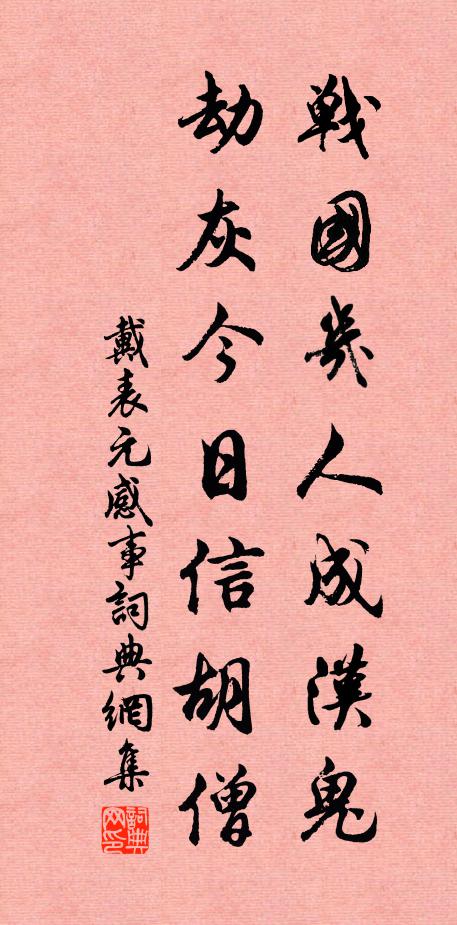 戰國幾人成漢鬼
劫灰今日信胡僧
戴表元感事詞典網集
詞典网印